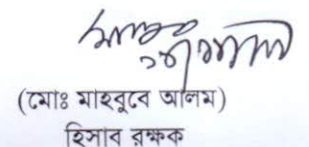 (মোঃ মাহবুবে আলম)
হিসাব রক্ষক